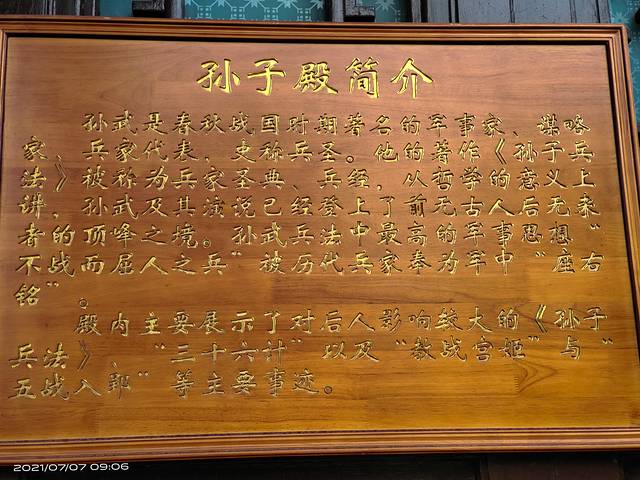 孙子殿简介
孙武是春秋战国时期著名的军事家、谋略
家、兵家代表，史称兵圣。他的著作《孙子兵
法》被称为兵家圣典、兵经，从哲学的意义上
讲，孙武及其演说已经登上了前无古人后无来
者的顶峰之境。孙武兵法中最高的军事思想“
不战而屈人之兵”被历代兵家奉为军中“座右
铭”。
殿内主要展示了对后人影响较大的《孙子
兵法》、“三十六计”以及“教战宫姬”与“
五战入郢”等主要事迹。
2021/07/07 09:06